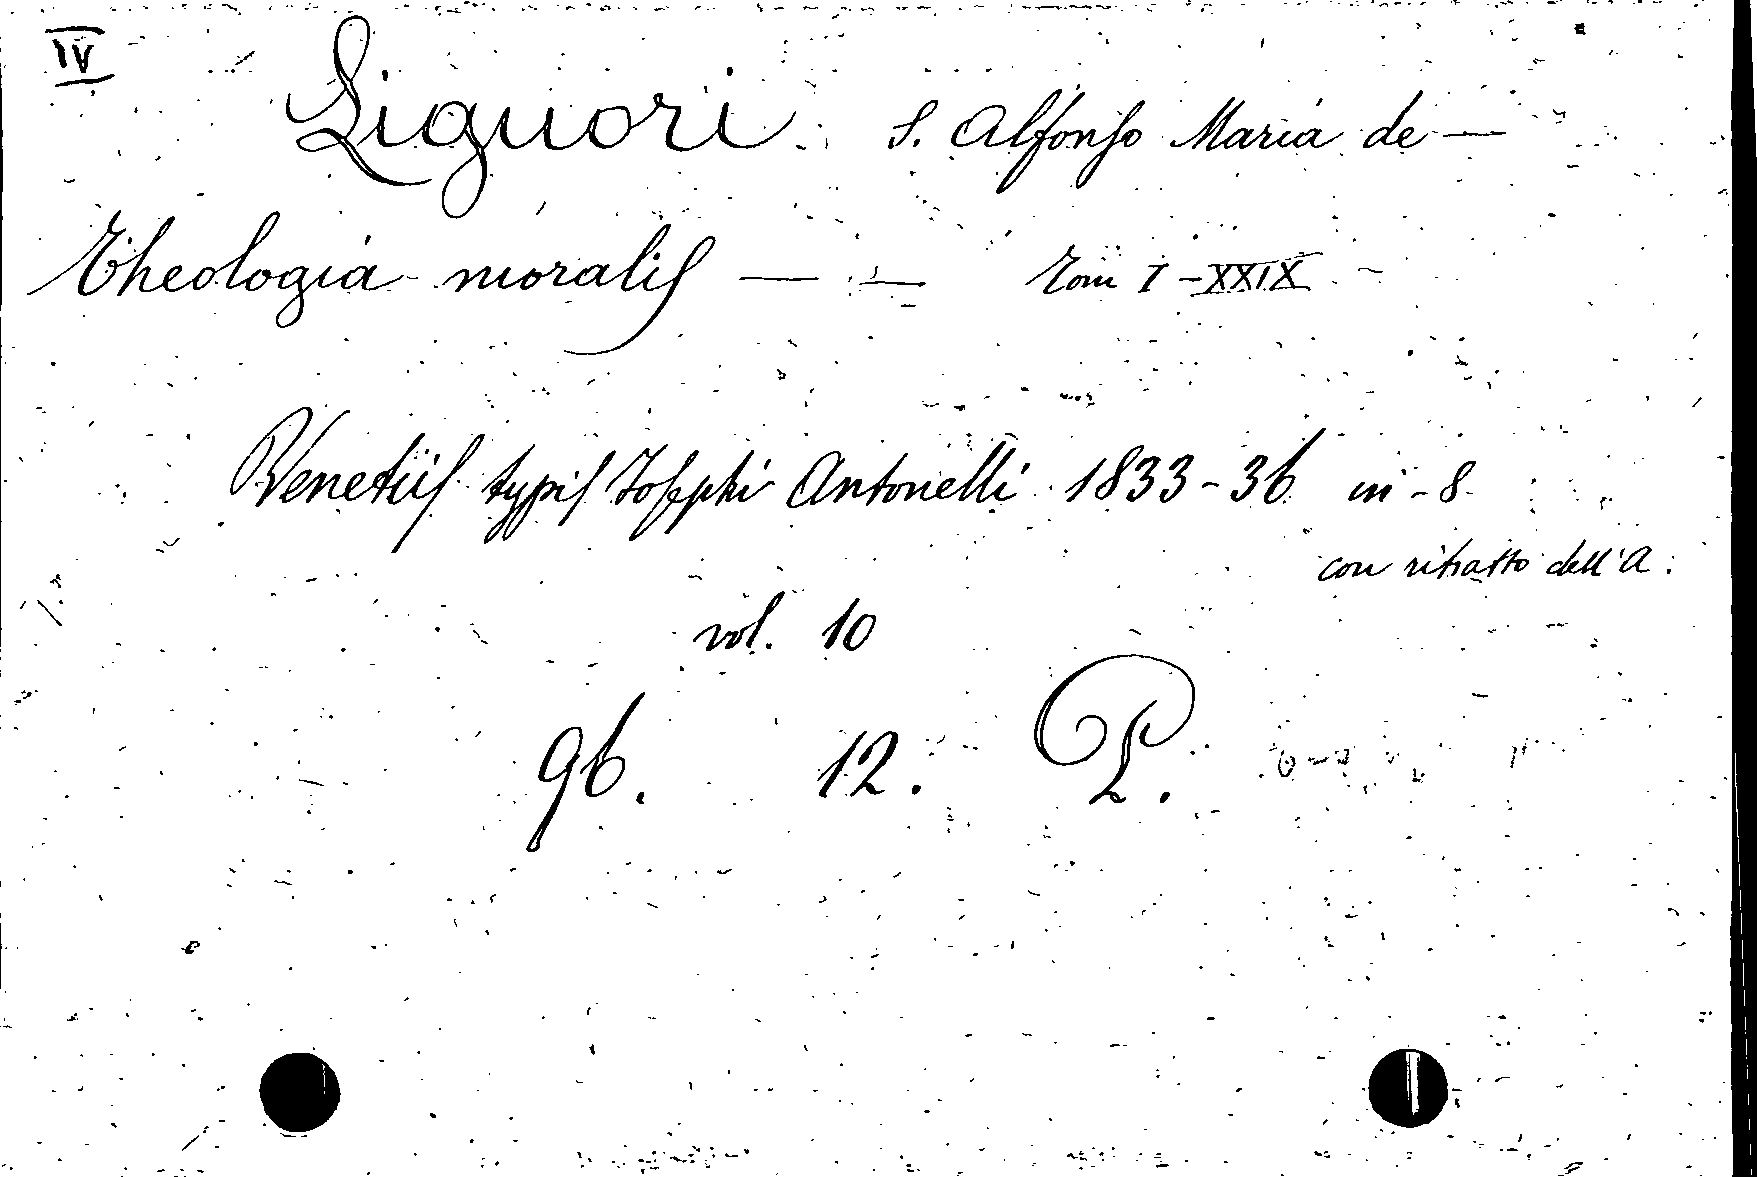 IV
Liguori S. Alfonso Maria de —
Theologia moralis — — Tom I - XXIX
Venetiis typis Josephi Antonelli 1833-36 in-8
con ritratto dell'A.
vol. 10
96. 12. P.